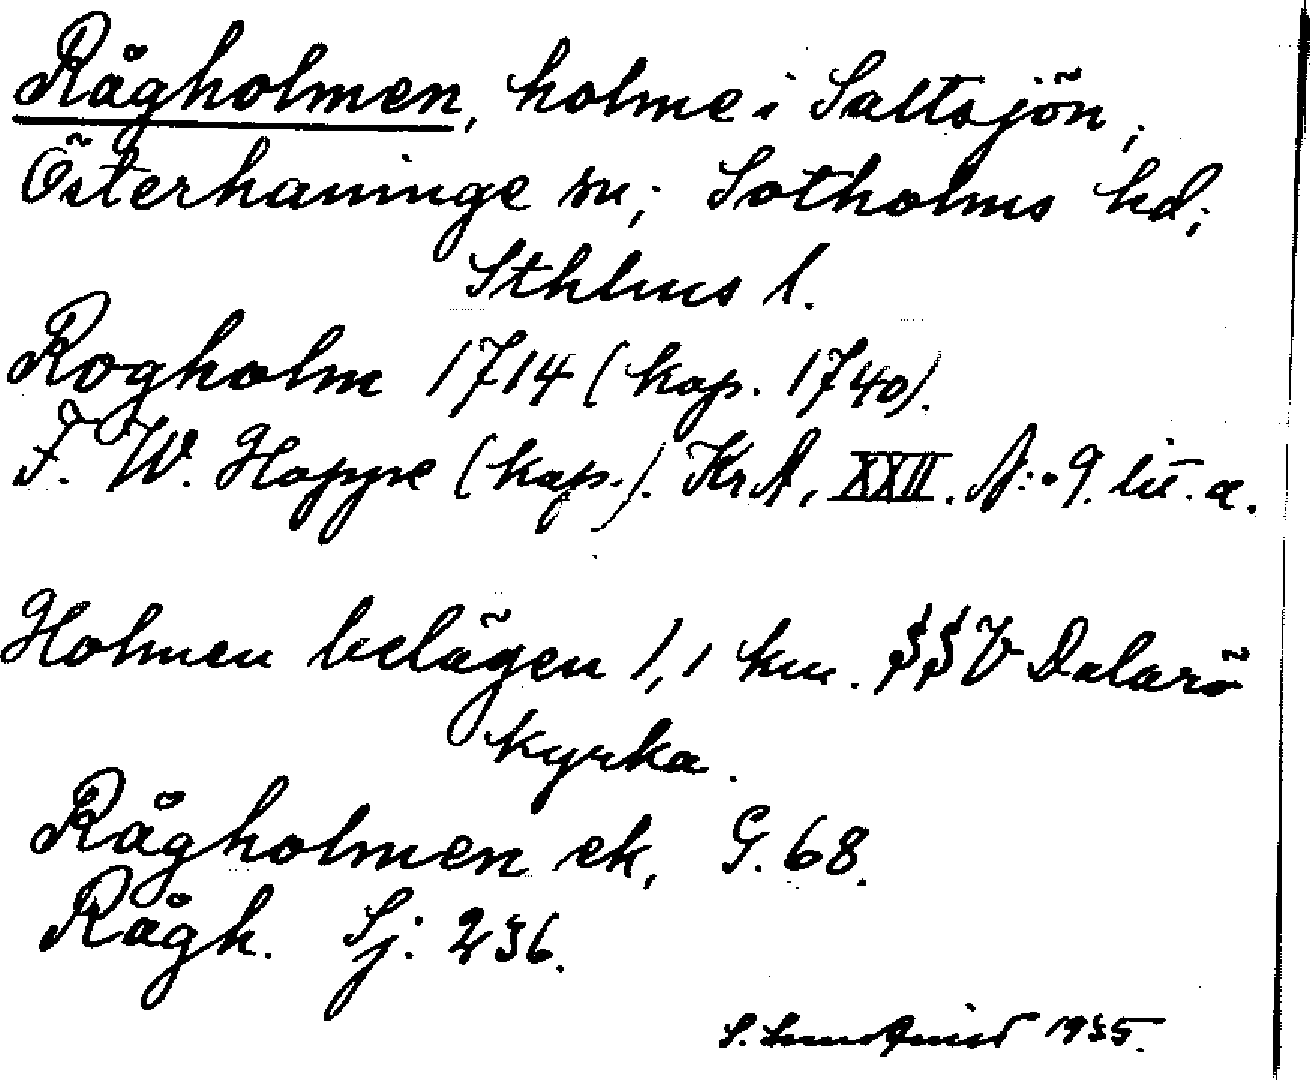 Rågholmen, holme i Saltsjön,
Österhaninge sn, Sotholms hd,
Sthlms l.
Rogholm 1714 (kop. 1740).
F. W. Hoppe (kop.). KrA, XXII. N:o 9. lit. a.
Holmen belägen 1,1 km. SSV Dalarö
kyrka.
Rågholmen ek, G. 68.
Rågh. Sj. 236.
S. 1935.